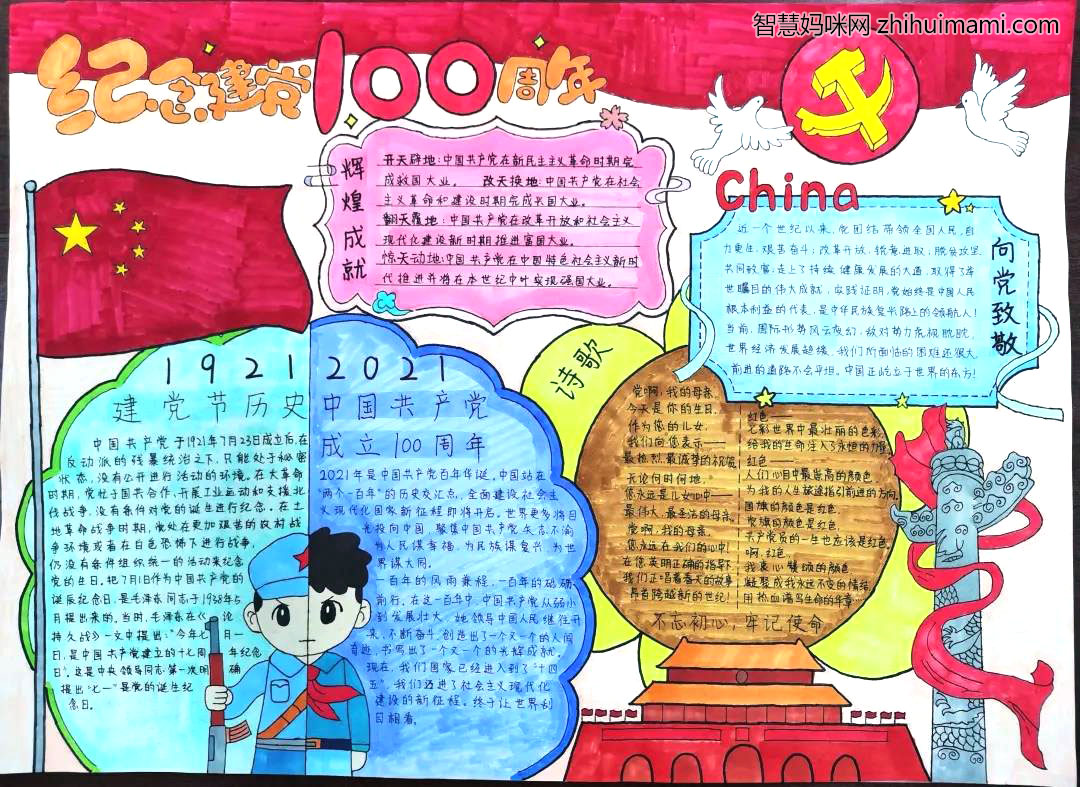 智慧妈咪网 zhihuimami.com
纪念建党100周年
辉煌成就
开天辟地:中国共产党在新民主主义革命时期完
成救国大业。 改天换地:中国共产党在社会
主义革命和建设时期完成兴国大业。
翻天覆地:中国共产党在改革开放和社会主义
现代化建设新时期推进富国大业。
惊天动地:中国共产党在中国特色社会主义新时
代推进并将在本世纪中叶实现强国大业。
China
向党致敬
近一个世纪以来,党团结带领全国人民,自
力更生,艰苦奋斗;改革开放,锐意进取;脱贫攻坚,
共同致富,走上了持续、健康发展的大道,取得了举
世瞩目的伟大成就,实践证明,党始终是中国人民
根本利益的代表,是中华民族复兴路上的领航人!
当前,国际形势风云变幻,敌对势力虎视眈眈,
世界经济发展趋缓,我们所面临的困难还很大,
前进的道路不会平坦。中国正屹立于世界的东方!
1921
建党节历史
中国共产党于1921年7月23日成立后,在
反动派的残暴统治之下,只能处于秘密
状态,没有公开进行活动的环境。在大革命
时期,党忙于国共合作,开展工业运动和支援北
伐战争,没有条件对党的诞生进行纪念。在土
地革命战争时期,党处在更加艰苦的农村战
争环境或者在白色恐怖下进行战争,
仍没有条件组织统一的活动来纪念
党的生日。把7月1日作为中国共产党的
诞辰纪念日,是毛泽东同志于1938年5
月提出来的。当时,毛泽东在《论
持久战》一文中提出:"今年七月一
日,是中国共产党建立的十七周年纪念
日",这是中央领导同志第一次明确
提出"七一"是党的诞生纪
念日。
2021
中国共产党
成立100周年
2021年是中国共产党百年华诞。中国站在
"两个一百年"的历史交汇点,全面建设社会主
义现代化国家新征程即将开启。世界更多将目
光投向中国,聚焦中国共产党矢志不渝
为人民谋幸福、为民族谋复兴、为世
界谋大同。
一百年的风雨兼程,一百年的砥砺
前行。在这一百年中,中国共产党从弱小
到发展壮大。她领导中国人民继往开
来,不断奋斗,创造出了一个又一个的人间
奇迹,书写出了一个又一个的光辉成就。
现在,我们国家已经进入到了"十四
五",我们迈进了社会主义现代化
建设的新征程。终于让世界刮
目相看。
诗歌
党啊,我的母亲,
今天是你的生日,
作为您的儿女,
我们向您表示——
最热烈,最诚挚的祝贺
无论何时何地,
您永远是儿女心中——
最伟大、最圣洁的母亲
党啊,我的母亲,
您永远在我们的心中
在您英明正确的指导下
我们正唱着春天的故事
昂首跨越新的世纪!
红色——
七彩世界中最壮丽的色彩,
给我的生命注入了永恒的力量。
红色——
人们心目中最崇高的颜色,
为我的人生旅途指引前进的方向。
国旗的颜色是红色,
党旗的颜色是红色,
共产党员的一生也应该是红色。
啊,红色,
我衷心赞颂的颜色
凝聚成我永远不变的情结,
用热血谱写生命的华章…
不忘初心,牢记使命